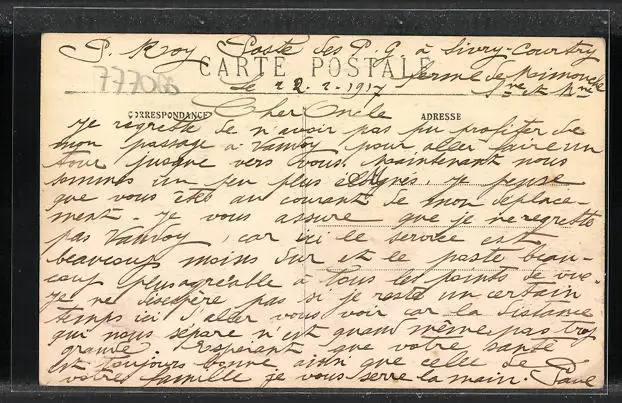 P. Rroy Poste des P. G à Sivry-Courtry
CARTE POSTALE
ferme de Mimouche
777088
le 22.2.1917 Sne et Mne
CORRESPONDANCE Cher Oncle ADRESSE
Je regrette de n'avoir pas pu profiter de
mon passage à Vanvoy pour aller faire un
tour jusque vers vous. Maintenant nous
sommes un peu plus éloignés, je pense
que vous êtes au courant de mon déplace-
ment. Je vous assure que je ne regrette
pas Vanvoy, car ici le service est
beaucoup moins dur et le poste beau-
coup plus agréable à tous les points de vue.
Je ne désespère pas si je reste un certain
temps ici d'aller vous voir car la distance
qui nous sépare n'est quand même pas trop
grande. Espérant que votre santé
est toujours bonne ainsi que celle de
votre famille je vous serre la main. Paul